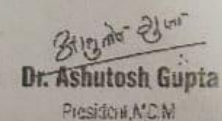 आशुतोष गुप्ता
Dr. Ashutosh Gupta
President, N.C.M